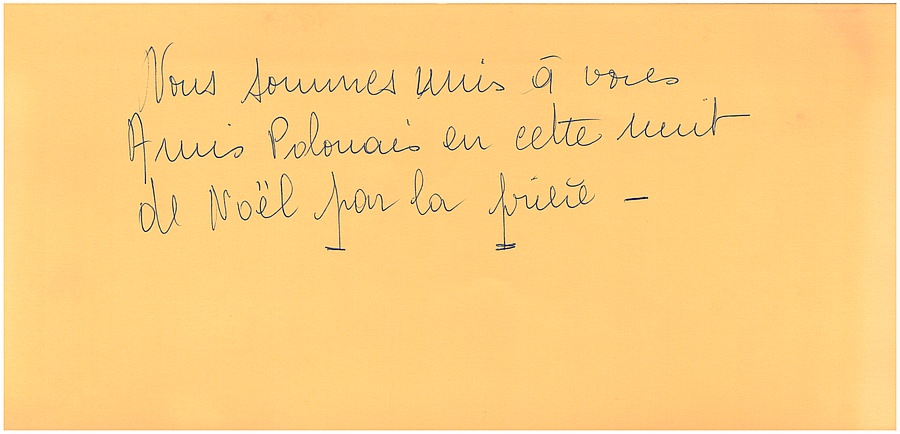 Nous sommes unis à vous
Amis Polonais en cette nuit
de Noël par la prière –